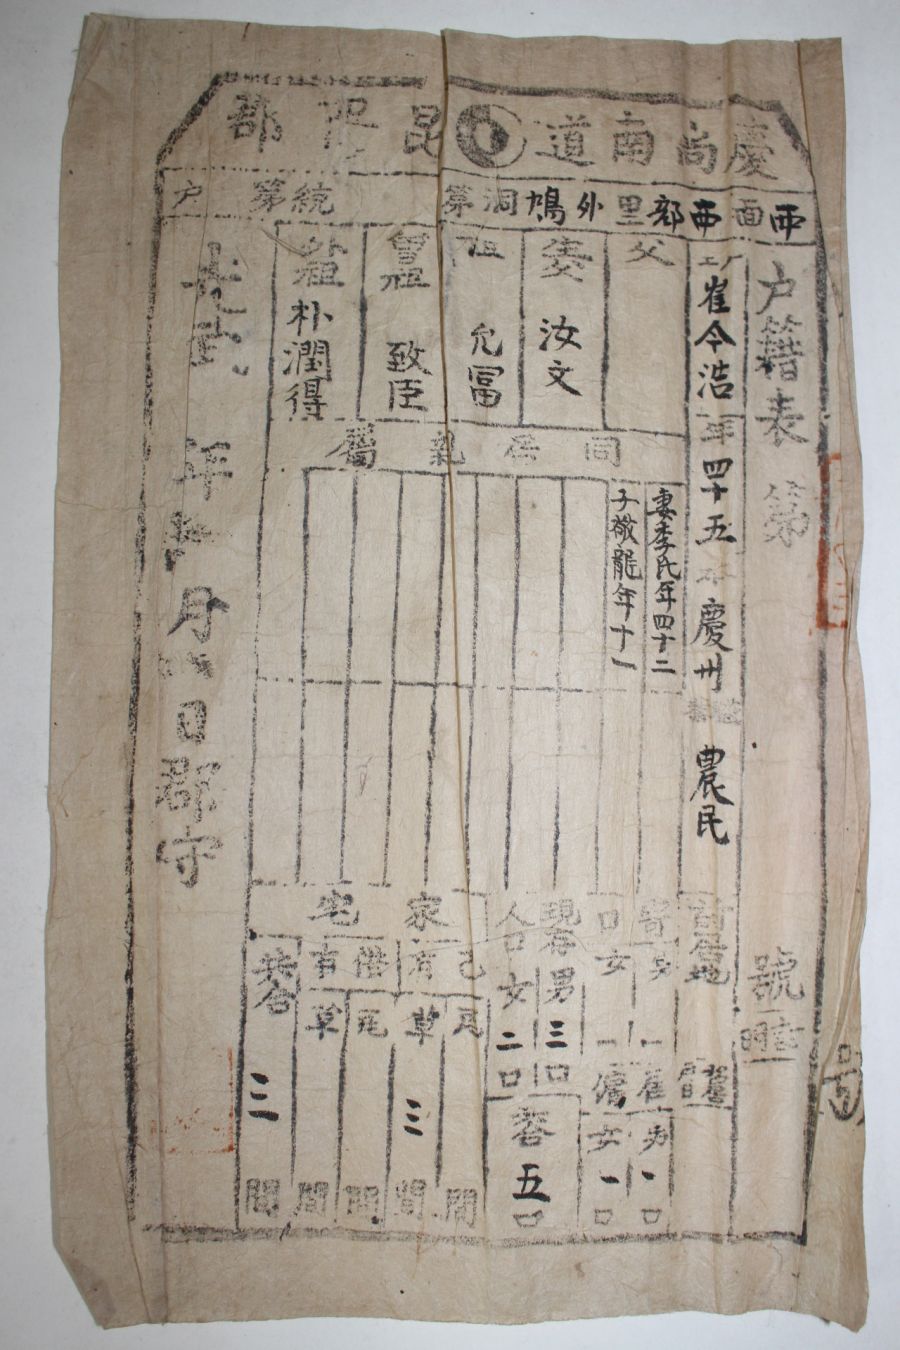 慶尚南道昆陽郡
西面西部里外鳩洞第 統第 户
户籍表 第 號
崔令浩 年四十五 本慶州 農民
前居地
父
汝文
祖 允冨
曾祖 致臣
外祖 朴潤得
同居親屬
妻李氏年四十二
子敬龍年十一
寄口
男一
女一
雇男一口
傭女一口
現存人口
男三口
女二口
共合五口
家宅
己有
瓦 間
草三間
借有
瓦 間
草 間
共合三間
光武 年 月 日郡守